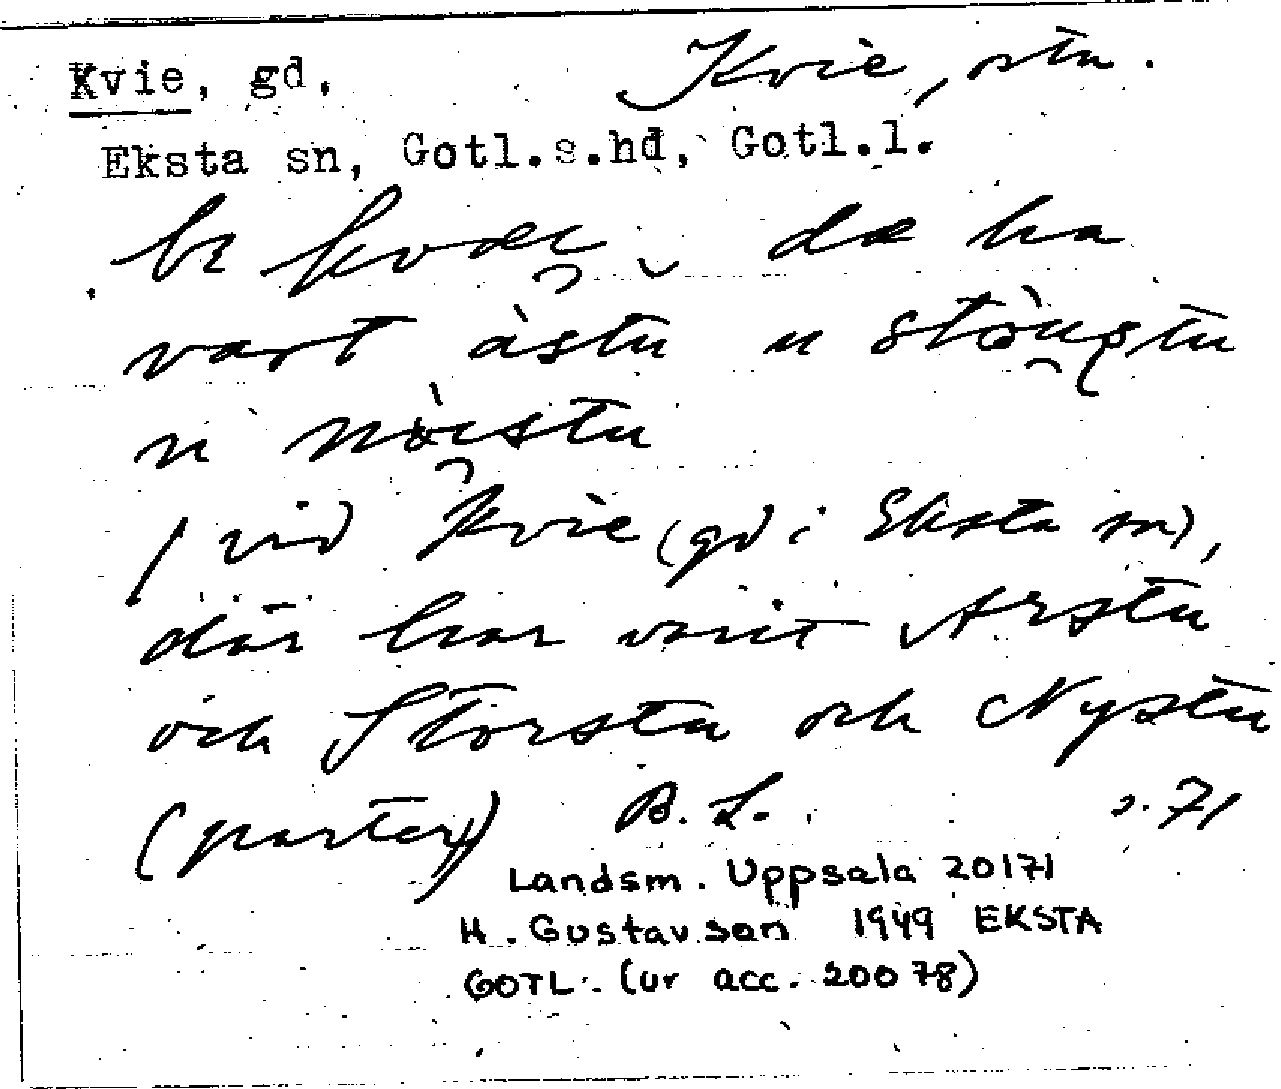 Kvie, gd, Kvie, stu.
Eksta sn, Gotl.s.hd, Gotl.l.
bi kvæi. dæ ha
vart àstu u stòustu
u nòistu
/ vid Kvie (gd i Eksta sn),
där har varit Arstu
och Storstu och Nystu
(parter)/ B. L. s. 71
Landsm. Uppsala 20171
H. Gustavson 1949 EKSTA
GOTL. (ur acc. 20078)